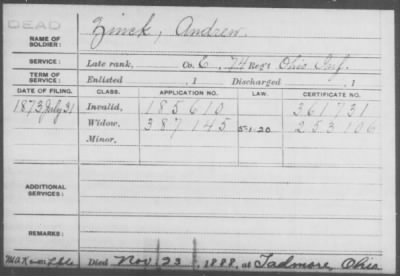 DEAD
NAME OF SOLDIER: Zinck, Andrew.
SERVICE: Late rank, Co. E, 74 Reg't Ohio Inf.
TERM OF SERVICE: Enlisted , 1 Discharged , 1
DATE OF FILING. CLASS. APPLICATION NO. LAW. CERTIFICATE NO.
1873 July 31 Invalid, 185610 361731
Widow, 387145 5-1-20 253106
Minor,
ADDITIONAL SERVICES:
REMARKS:
Died Nov. 23, 1888, at Tadmore, Ohio